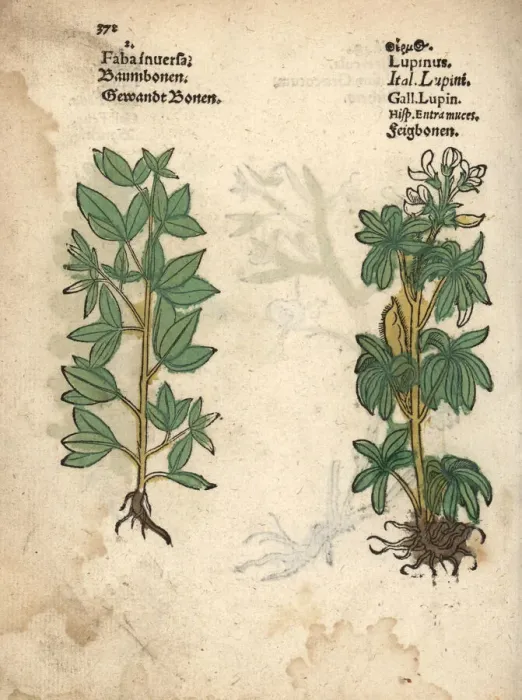 372
2.
Faba inuersa;
Baumbonen.
Gewandt Bonen.
Lupinus.
Ital. Lupini.
Gall. Lupin.
Hisp. Entramuces.
Feigbonen.